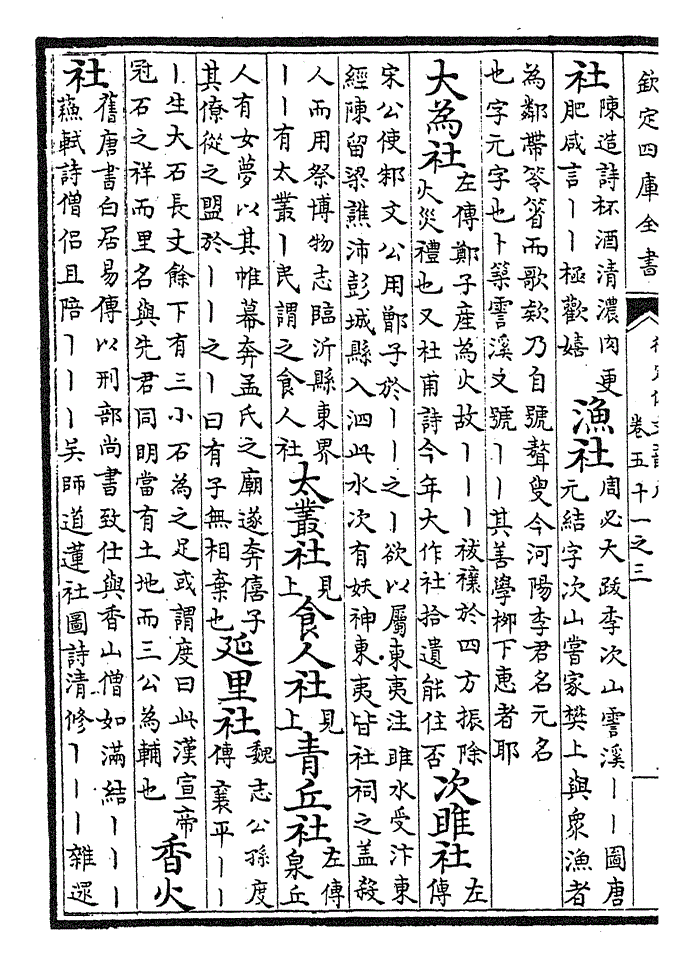 欽定四庫全書
卷五十一之三
社
陳造詩杯酒清濃肉更
肥咸言丨丨極歡嬉
漁社
周必大跋李次山霅溪丨丨圖唐
元結字次山嘗家樊上與衆漁者
為鄰帶笭箵而歌欸乃自號聱叟今河陽李君名元名
也字元字也卜築霅溪又號丨丨其善學栁下惠者耶
大為社
左傳鄭子產為火故丨丨丨祓禳於四方振除
火災禮也又杜甫詩今年大作社拾遺能住否
次雎社
左
傳
宋公使邾文公用鄫子於丨丨之丨欲以屬東夷注雎水受汴東
經陳留梁譙沛彭城縣入泗此水次有妖神東夷皆社祠之蓋殺
人而用祭博物志臨沂縣東界
丨丨有太叢丨民謂之食人社
太叢社
見
上
食人社
見
上
青丘社
左傳
泉丘
人有女夢以其帷幕奔孟氏之廟遂奔僖子
其僚從之盟於丨丨之丨曰有子無相棄也
延里社
魏志公孫度
傳襄平丨丨
丨生大石長丈餘下有三小石為之足或謂度曰此漢宣帝
冠石之祥而里名與先君同明當有土地而三公為輔也
香火
社
舊唐書白居易傳以刑部尚書致仕與香山僧如滿結丨丨丨
蘇軾詩僧侶且陪丨丨丨吳師道蓮社圖詩清修丨丨丨雜遝